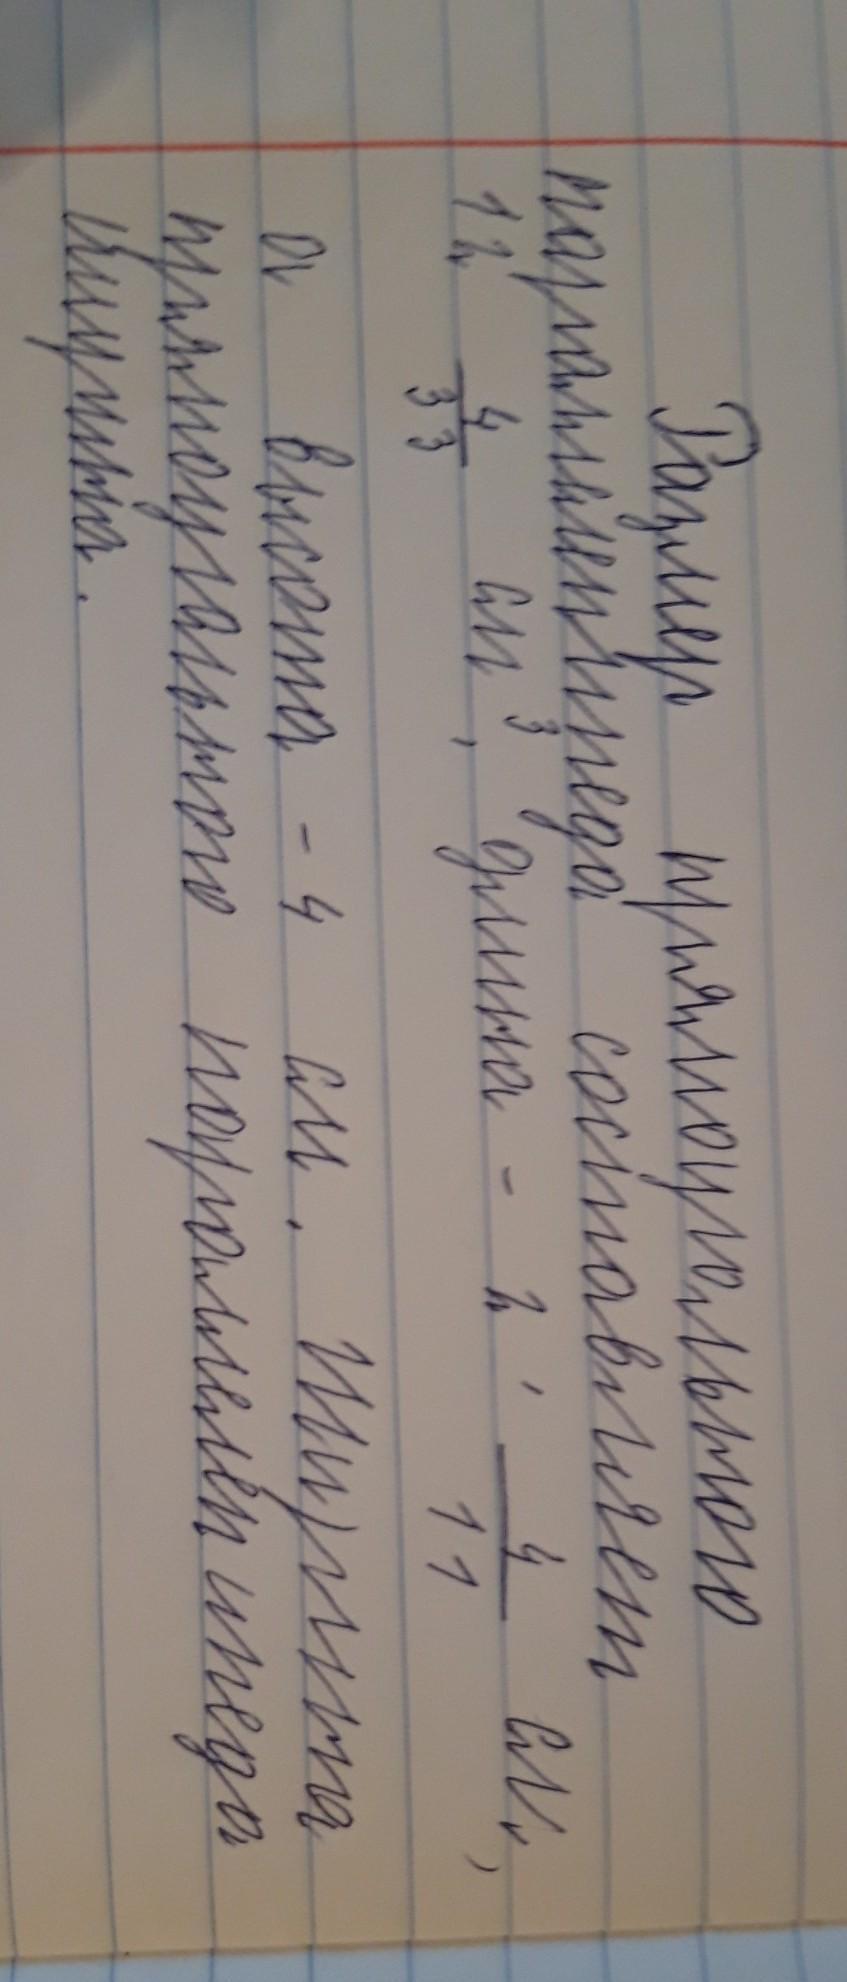 Размер прямоугольного
параллелепипеда составляет
12 4/33 см³, длина - 2, 4/11 см,
а высота - 4 см. Ширина
прямоугольного параллелепипеда